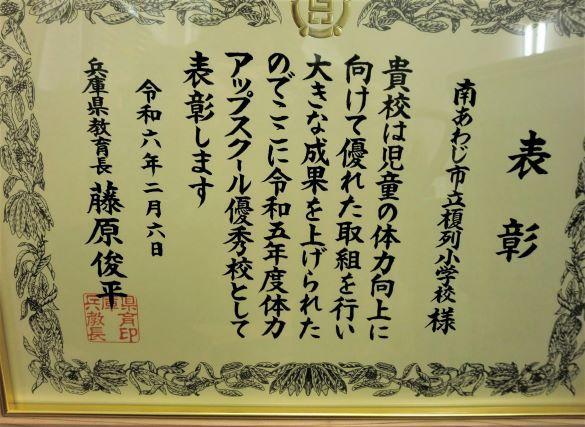 表彰
南あわじ市立榎列小学校様
貴校は児童の体力向上に
向けて優れた取組を行い
大きな成果を上げられた
のでここに令和五年度体力
アップスクール優秀校として
表彰します
令和六年二月六日
兵庫県教育長 藤原俊平
兵庫県
教育
長印